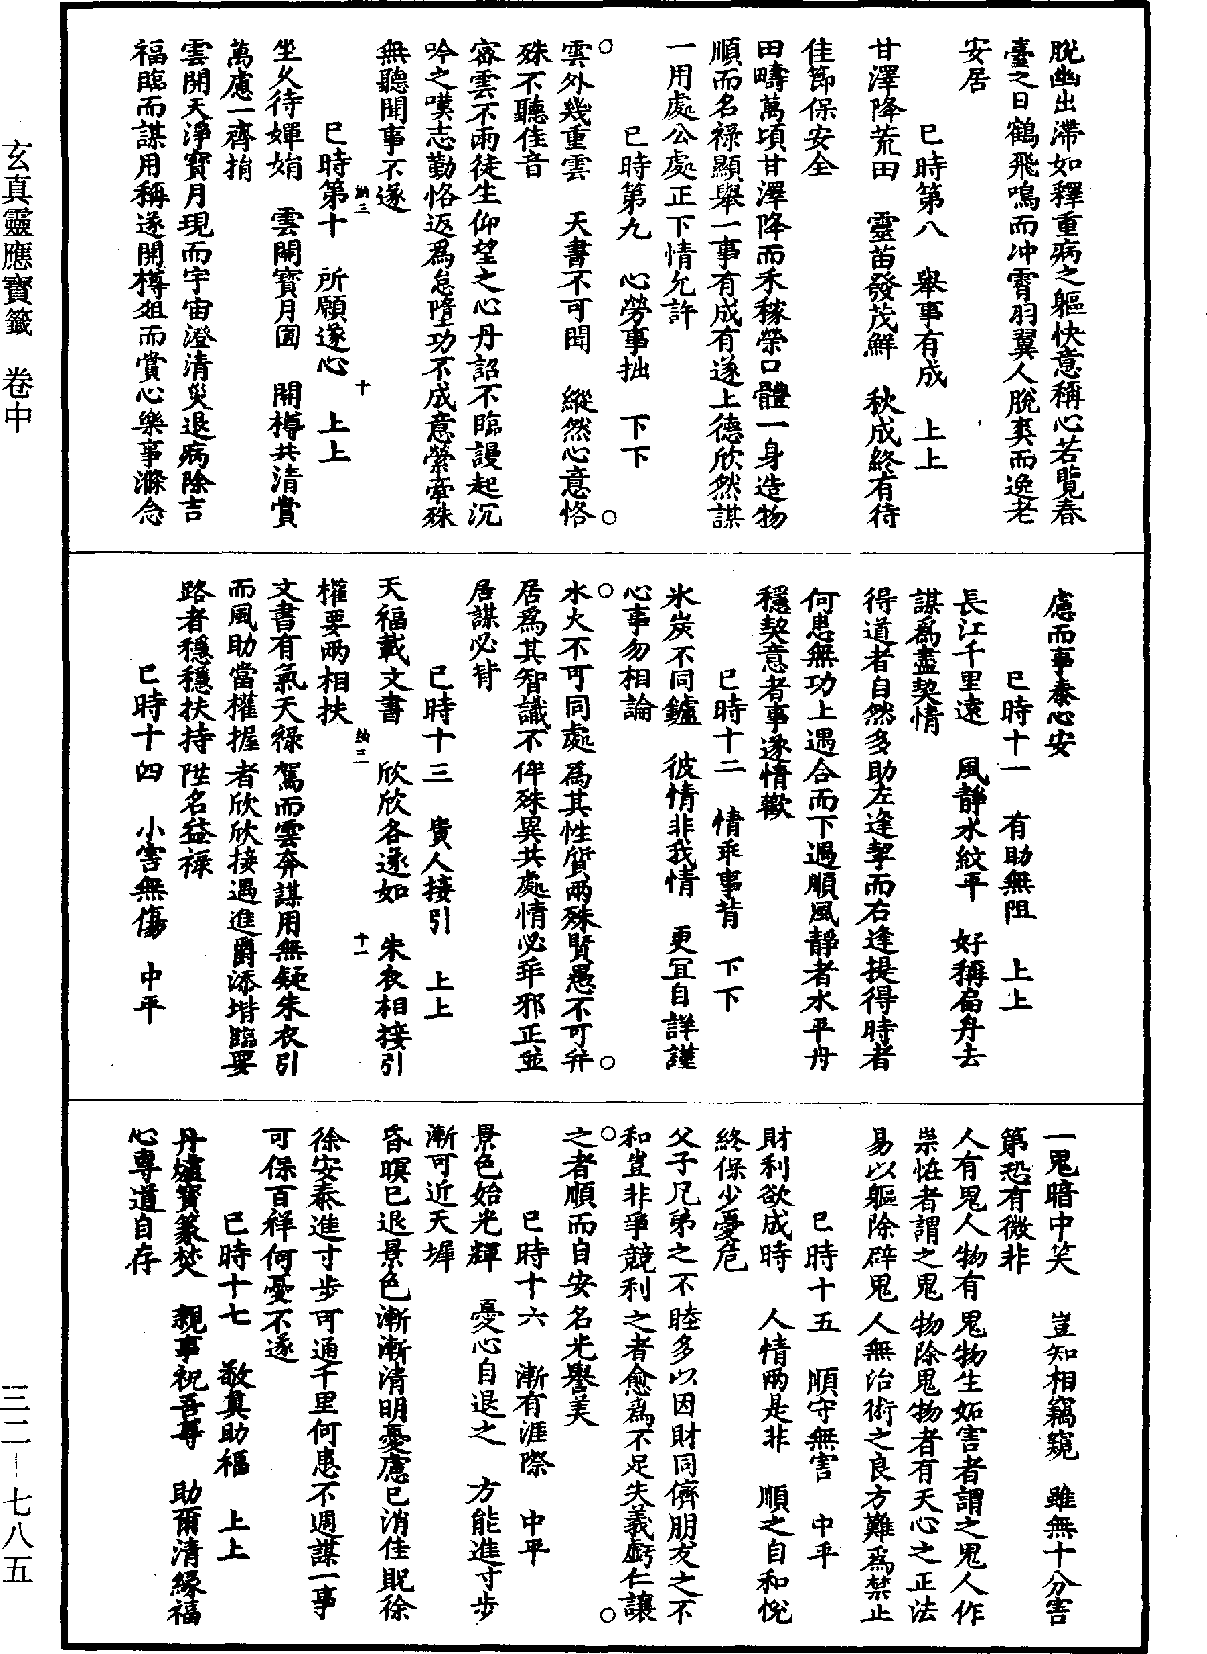 脫幽出滯如釋重病之軀快意稱心若覽春
臺之日鶴飛鳴而冲霄羽翼人脫爽而逸老
安居
巳時第八　舉事有成　上上
甘澤降荒田　靈苗發茂鮮　秋成終有待
佳節保安全
田疇萬頃甘澤降而禾稼榮口體一身造物
順而名祿顯舉一事有成有遂上德欣然謀
一用處公處正下情允許
巳時第九　心勞事拙　下下
雲外幾重雲　天書不可聞　縱然心意恪
殊不聽佳音
密雲不雨徒生仰望之心丹詔不臨謾起沉
吟之嘆志勤恪返爲怠墮功不成意縈牽殊
無聽聞事不遂
巳時第十　所願遂心　上上
坐久待嬋娟　雲開寶月圓　開樽共清賞
萬慮一齊捐
雲開天淨寶月現而宇宙澄清災退病除吉
福臨而謀用稱遂開樽俎而賞心樂事滌念
慮而事泰心安
巳時十一　有助無阻　上上
長江千里遠　風靜水紋平　好稱扁舟去
謀爲盡契情
得道者自然多助左逢挈而右逢提得時者
何患無功上遇合而下遇順風靜者水平舟
穩契意者事遂情歡
巳時十二　情乖事背　下下
氷炭不同鑪　彼情非我情　更宜自詳謹
心事勿相論
水火不可同處爲其性質兩殊賢愚不可并
居爲其智識不侔殊異共處情必乖邪正並
居謀必背
巳時十三　貴人接引　上上
天福載文書　欣欣各遂如　朱衣相接引
權要兩相扶
文書有氣天祿駕而雲奔謀用無疑朱衣引
而風助當權握者欣欣接遇進爵添堦臨要
路者穩穩扶持陞名益祿
巳時十四　小害無傷　中平
一鬼暗中笑　豈知相竊窺　雖無十分害
第恐有微非
人有鬼人物有鬼物生妬害者謂之鬼人作
祟恠者謂之鬼物除鬼物者有天心之正法
易以軀除辟鬼人無治術之良方難爲禁止
巳時十五　順守無害　中平
財利欲成時　人情兩是非　順之自和悅
終保少憂危
父子兄弟之不睦多以因財同儕朋友之不
和豈非爭競利之者愈爲不足失義虧仁讓
之者順而自安名光譽美
巳時十六　漸有涯際　中平
景色始光輝　憂心自退之　方能進寸步
漸可近天墀
昏暝已退景色漸漸清明憂慮已消佳貺徐
徐安泰進寸步可通千里何患不週謀一事
可保百祥何憂不遂
巳時十七　敬真助福　上上
丹爐寶篆焚　親事祝吾尊　助爾清緣福
心專道自存
玄真靈應寶籤　卷中
三二—七八五